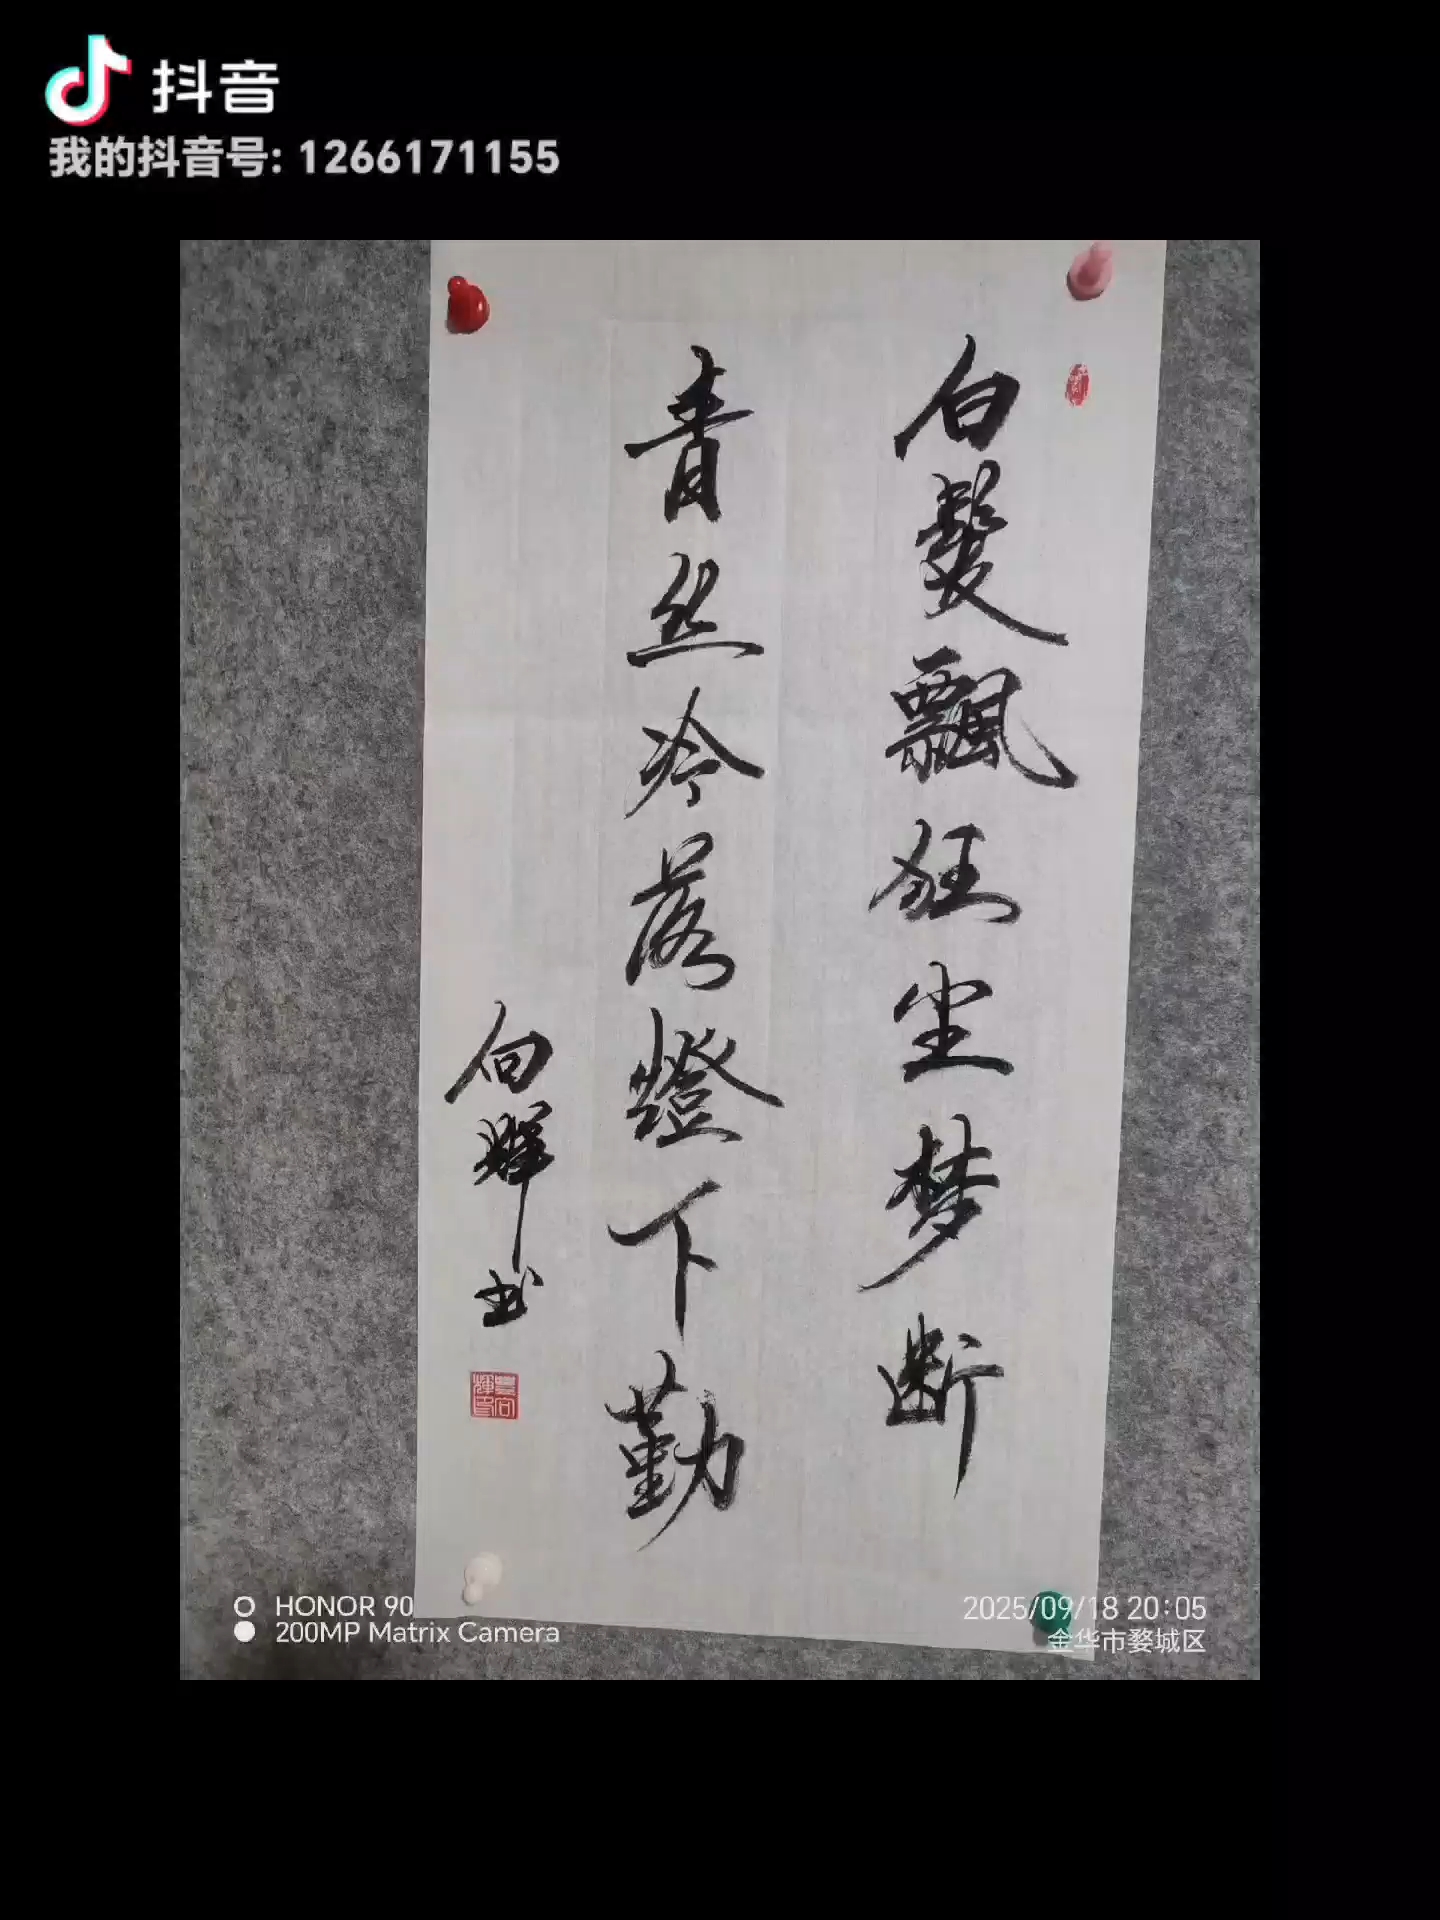 抖音
我的抖音号: 1266171155
白髮飄狂尘梦断
青丝冷落燈下勤
向辉书
HONOR 90
200MP Matrix Camera
2025/09/18 20:05
金华市婺城区